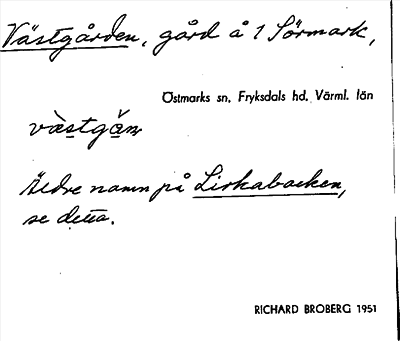 Västgården, gård å 1 Sörmark,
Östmarks sn, Fryksdals hd. Värml. län
Äldre namn på Lirkabacken,
se detta.
RICHARD BROBERG 1951